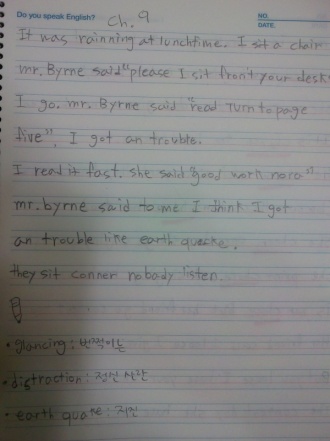 Do you speak English?
Ch. 9
NO.
DATE.
It was rainning at lunchtime. I sit a chair
mr. Byrne said "please I sit front your desk
I go. mr. Byrne said "read Turn to page
five". I got an trouble.
I read it fast. she said "good work nora"
mr. byrne said to me I think I got
an trouble line earth queake.
they sit conner nobady listen.
• glancing : 번쩍이는
• distraction : 정신 산란
• earth quake : 지진